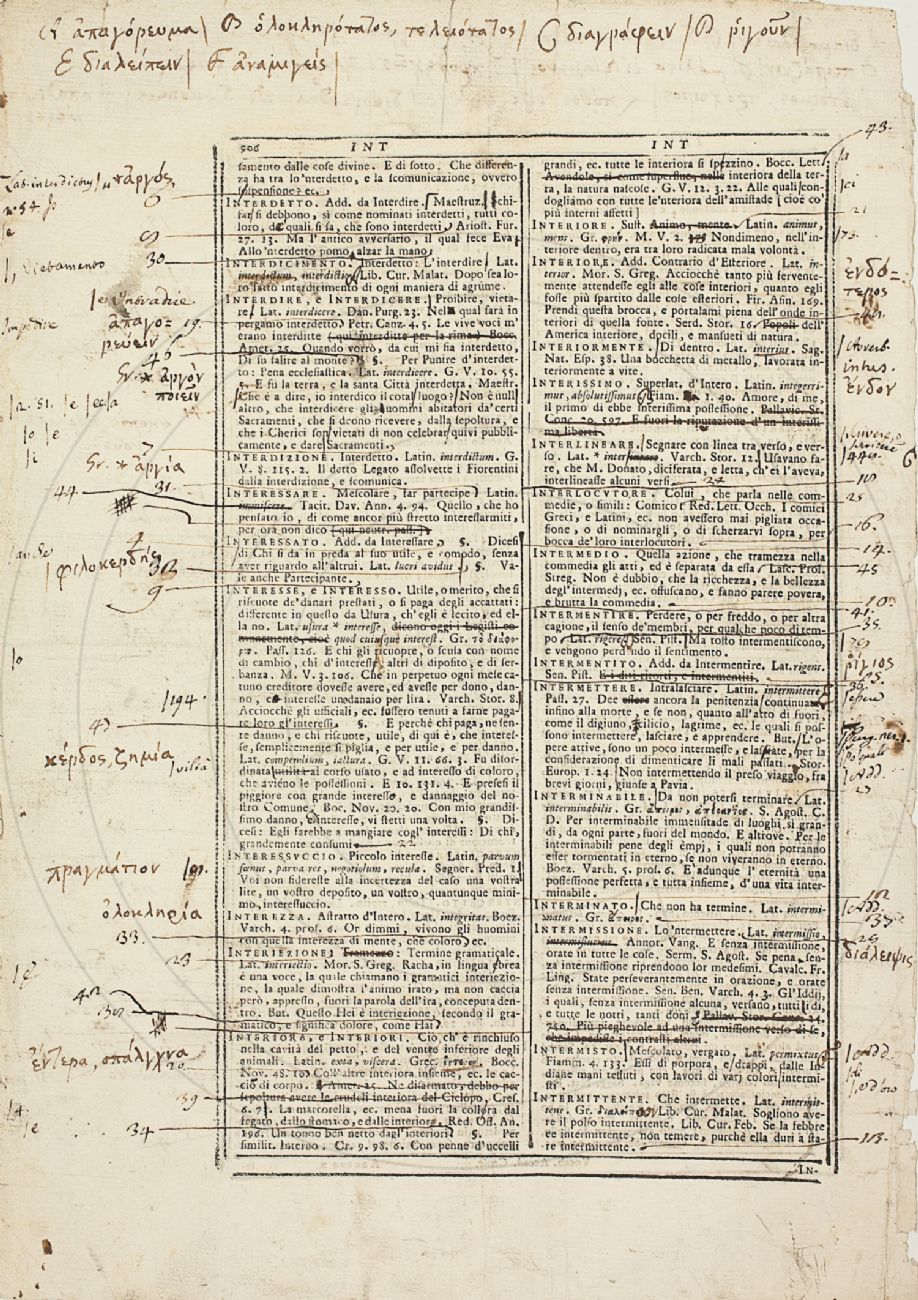 ἀπαγόρευμα
ὁλοκληρότατος, τελειότατος
διαγράφειν
ῥιγοῦν
διαλείπειν
ἀναμιγείς
506 INT INT
samento dalle cose divine. E di sotto. Che differen-
za ha tra lo'nterdetto, e la scomunicazione, ovvero
sospensione? ec.
INTERDETTO. Add. da Interdire. Maestruz. Schi-
far si debbono, sì come nominati interdetti, tutti co-
loro, de quali si sa, che sono interdetti. Ariost. Fur.
27. 13. Ma l'antico avversario, il qual fece Eva
Allo 'nterdetto pomo alzar la mano,
INTERDICIMENTO. Interdetto: L'interdire. Lat.
interdictum, interdictio. Lib. Cur. Malat. Dopo sea lo-
ro fatto interdicimento di ogni maniera di agrume.
INTERDIRE, e INTERDICERE. Proibire, vieta-
re. Lat. interdicere. Dan. Purg. 23. Nel qual sarà in
pergamo interdetto. Petr. Canz. 4. 5. Le vive voci m'
erano interditte (qui interditte per la rima) Bocc.
Amet. 25. Quando vorrò, da cui mi fia interdetto,
Di su salire al monte? §. Per Punire d'interdet-
to: Pena ecclesiastica. Lat. interdicere. G. V. 10. 55.
5. E fu la terra, e la santa Città interdetta. Maestr.
Che è a dire, io interdico il cotal luogo? Non è null'
altro, che interdicere gli uomini abitatori da'certi
Sacramenti, che si deono ricevere, dalla sepoltura, e
che i Cherici son vietati di non celebrar quivi pubbli-
camente, e dare Sacramenti.
INTERDIZIONE. Interdetto. Latin. interdictum. G.
V. 8. 115. 2. Il detto Legato assolvette i Fiorentini
dalla interdizione, e scomunica.
INTERESSARE. Mescolare, far partecipe. Latin.
Tacit. Dav. Ann. 4. 94. Quello, che ho
pensato io, di come ancor più stretto interessarmiti,
per ora non dico (qui neutr. pass.)
INTERESSATO. Add. da Interessare. §. Dicesi
di Chi si da in preda al suo utile, e comodo, senza
aver riguardo all'altrui. Lat. lucri avidus. §. Va-
le anche Partecipante.
INTERESSE, e INTERESSO. Utile, o merito, che si
riscuote de'danari prestati, o si paga degli accattati:
differente in questo da Usura, ch'egli è lecito, ed el-
la no. Lat. usura * interesse, dicono oggi i Legisti co-
munemente, cioè quod cuiusque interest. Gr. τὸ διάφο-
ρον. Pass. 126. E chi gli ricuopre, o scusa con nome
di cambio, chi d'interesse, altri di diposito, e di ser-
banza. M. V. 3. 106. Che in perpetuo ogni mese ca-
tuno creditore dovesse avere, ed avesse per dono, dan-
no, ed interesse undanaio per lira. Varch. Stor. 8.
Acciocchè gli ufficiali, ec. fussero tenuti a farne paga-
re loro gl'interessi. §. E perchè chi paga, ne sen-
te danno, e chi riscuote, utile, di qui è, che interes-
se, semplicemente si piglia, e per utile, e per danno.
Lat. compendium, iactura. G. V. 11. 66. 3. Fu disor-
dinata utilità al corso usato, e ad interesso di coloro,
che avieno le possessioni. E 10. 131. 4. E presesi il
piggiore con grande interesso, e dannaggio del no-
stro Comune. Boc. Nov. 20. 20. Con mio grandis-
simo danno, e interesse, vi stetti una volta. §. Di-
cesi: Egli farebbe a mangiare cogl' interessi: Di chi,
grandemente consumi.
INTERESSVCCIO. Piccolo interesse. Latin. parvum
fœnus, parva res, negotiolum, recula. Segner. Pred. 1.
Voi non fidereste alla incertezza del caso una vostra
lite, un vostro deposito, un vostro, quantunque mini-
mo, interessuccio.
INTEREZZA. Astratto d'Intero. Lat. integritas. Boez.
Varch. 4. pros. 6. Or dimmi, vivono gli huomini
con quella interezza di mente, che coloro? ec.
INTERIEZIONE. Tramezzo: Termine gramaticale.
Lat. interiectio. Mor. S. Greg. Racha, in lingua ebrea
è una voce, la quale chiamano i gramatici interiezio-
ne, la quale dimostra l'animo irato, ma non caccia
però, appresso, fuori la parola dell'ira, conceputa den-
tro. But. Questo Hei è interiezione, secondo il gra-
matico, e significa dolore, come Hai
INTERIORA, e INTERIORI. Ciò ch'è rinchiuso
nella cavità del petto, e del ventre inferiore degli
animali. Latin. exta, viscera. Grec. ἔντερα. Bocc.
Nov. 48. 10 Coll'altre interiora insieme, ec. le cac-
ciò di corpo. E Amet. 25. Ne disarmato, debbo per
sepoltura avere le crudeli interiora del Ciclopo, Cres.
6. 71. La marcorella, ec. mena fuori la collora dal
fegato, dallo stomaco, e dalle interiora. Red. Oss. An.
196. Un tonno ben netto dagl'interiori §. Per
similit. Interno. Cr. 9. 98. 6. Con penne d'uccelli
grandi, ec. tutte le interiora si spezzino. Bocc. Lett.
Avendole, sì come superflue, nelle interiora della ter-
ra, la natura nascose. G. V. 12. 3. 22. Alle quali con-
dogliamo con tutte le'nteriora dell'amistade [cioè co'
più interni affetti]
INTERIORE. Sust. Animo, mente. Latin. animus,
mens. Gr. φρήν. M. V. 2. Nondimeno, nell'in-
teriore dentro, era tra loro radicata mala volontà.
INTERIORE. Add. Contrario d'Esteriore. Lat. in-
terior. Mor. S. Greg. Acciocchè tanto più fervente-
mente attendesse egli alle cose interiori, quanto egli
fosse più spartito dalle cose esteriori. Fir. Asin. 169.
Prendi questa brocca, e portalami piena dell'onde in-
teriori di quella fonte. Serd. Stor. 16. Popoli dell'
America interiore, docili, e mansueti di natura.
INTERIORMENTE. Di dentro. Lat. interius. Sag.
Nat. Esp. 38. Una bocchetta di metallo, lavorata in-
teriormente a vite.
INTERISSIMO. Superlat. d'Intero. Latin. integerri-
mus, absolutissimus. Fiam. 1. 40. Amore, di me,
il primo di ebbe interissima possessione. Pallavic. St.
Conc. 20. 597. E fuori la riputazione d'un interissi-
ma libertà.
INTERLINEARE. Segnare con linea tra verso, e ver-
so. Lat. * Varch. Stor. 12. Usavano fa-
re, che M. Donato, diciferata, e letta, ch'ei l'aveva,
interlineasse alcuni versi
INTERLOCVTORE. Colui, che parla nelle com-
medie, o simili: Comico. Red. Lett. Occh. I comici
Greci, e Latini, ec. non avessero mai pigliata occa-
sione, o di nominargli, o di scherzarvi sopra, per
bocca de'loro interlocutori.
INTERMEDIO. Quella azione, che tramezza nella
commedia gli atti, ed è separata da essa. Lasc. Prol.
Streg. Non è dubbio, che la ricchezza, e la bellezza
degl'intermedj, ec. offuscano, e fanno parere povera,
e brutta la commedia.
INTERMENTIRE. Perdere, o per freddo, o per altra
cagione, il senso de'membri, per qualche poco di tem-
po. Lat. rigere. Sen. Pist. Ma tosto intermentiscono,
e vengono perdendo il sentimento.
INTERMENTITO. Add. da Intermentire. Lat. rigens.
Sen. Pist. E i diti ritorti, e intermentiti.
INTERMETTERE. Intralasciare. Latin. intermittere.
Pass. 27. Dee essere ancora la penitenzia continuata
infino alla morte, e se non, quanto all'atto di fuori,
come il digiuno, cilicio, lagrime, ec. le quali si pos-
sono intermettere, lasciare, e apprendere. But. L'o-
pere attive, sono un poco intermesse, e lassate, per la
considerazione di dimenticare li mali passati. Stor.
Europ. 1. 24. Non intermettendo il preso viaggio, fra
brevi giorni, giunse a Pavia.
INTERMINABILE. Da non potersi terminare. Lat.
interminabilis. Gr. S. Agost. C.
D. Per interminabile immensitade di luoghi, si gran-
di, da ogni parte, fuori del mondo. E altrove. Per le
interminabili pene degli empj, i quali non potranno
esser tormentati in eterno, se non viveranno in eterno.
Boez. Varch. 5. pros. 6. E'adunque l'eternità una
possessione perfetta, e tutta insieme, d'una vita inter-
minabile.
INTERMINATO. Che non ha termine. Lat. intermi-
natus. Gr. ἄπειρος.
INTERMISSIONE. Lo'ntermettere. Lat. intermissio,
Annot. Vang. E senza intermissione,
orate in tutte le cose. Serm. S. Agost. Se pena, sen-
za intermissione riprendono lor medesimi. Cavalc. Fr.
Ling. State perseverantemente in orazione, e orate
senza intermissione. Sen. Ben. Varch. 4. 3. Gl'Iddij,
i quali, senza intermissione alcuna, versano, tutti i di,
e tutte le notti, tanti doni. Pallav. Stor. Conc. 24.
750. Più pieghevole ad una intermissione verso di se,
che impedisse i contrasti altrui.
INTERMISTO. Mescolato, vergato. Lat. permixtus.
Fiamm. 4. 133. Essi di porpora, e drappi, dalle In-
diane mani tessuti, con lavori di varj colori intermi-
sti.
INTERMITTENTE. Che intermette. Lat. intermit-
tens. Gr. διαλείπων. Lib. Cur. Malat. Sogliono ave-
re il polso intermittente. Lib. Cur. Feb. Se la febbre
ee intermittente, non temere, purchè ella duri a sta-
re intermittente.
IN-
ἀργός
9
30
Vietamento
ἀπαγο-
ρεύειν
19.
46
Gr. * ἀργὸν
ποιεῖν
Gr. * ἀργία
31.
44.
4
φιλοκερδής
32
9
1194.
κέρδος, ζημία
πραγμάτιον
ὁλοκληρία
33.
23
42
30
ἔντερα, σπλάγχνα
39
34
22
24
43.
21
ἐνδό-
τερος
ἔνδον
10
25
16.
14.
45
10
41.
35.
ῥίγιος
36.
27
102
37
25
διάλειψις
113.